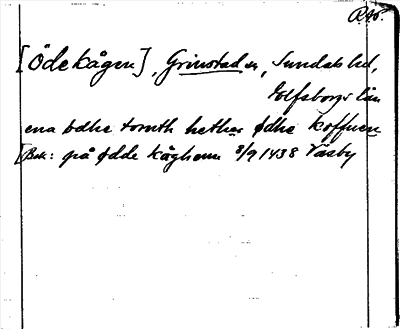 RAp.
[Ödekågen], Grinstad sn, Sundals hd,
Elfsborgs län
ena ödhe tomth hether ødhe koffuen
[Bak: på ødde kåghom 8/9 1438 Väsby